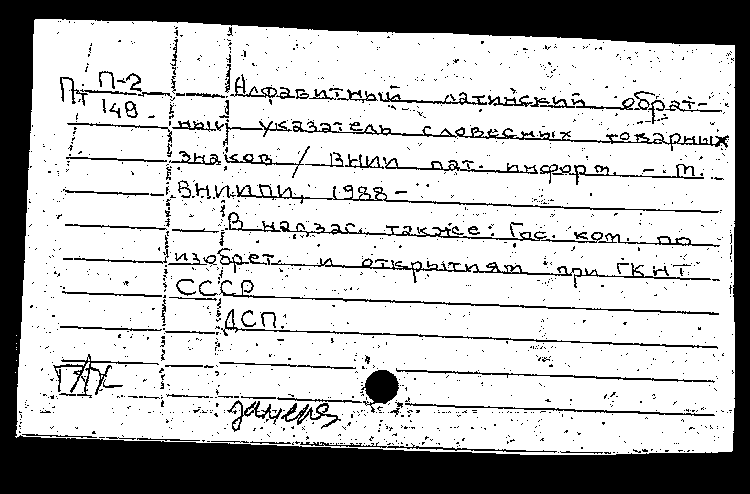 Пт П-2
149
Алфавитный латинский обрат-
ный указатель словесных товарных
знаков / ВНИИ пат. информ. - М.
ВНИИПИ, 1988-
В надзаг. также: Гос. ком. по
изобрет. и открытиям при ГКНТ
СССР
ДСП.